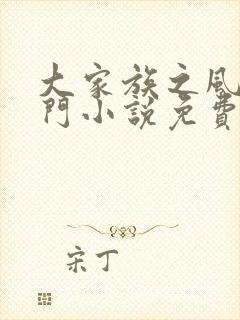 大家族之風
門小説免費
宋丁